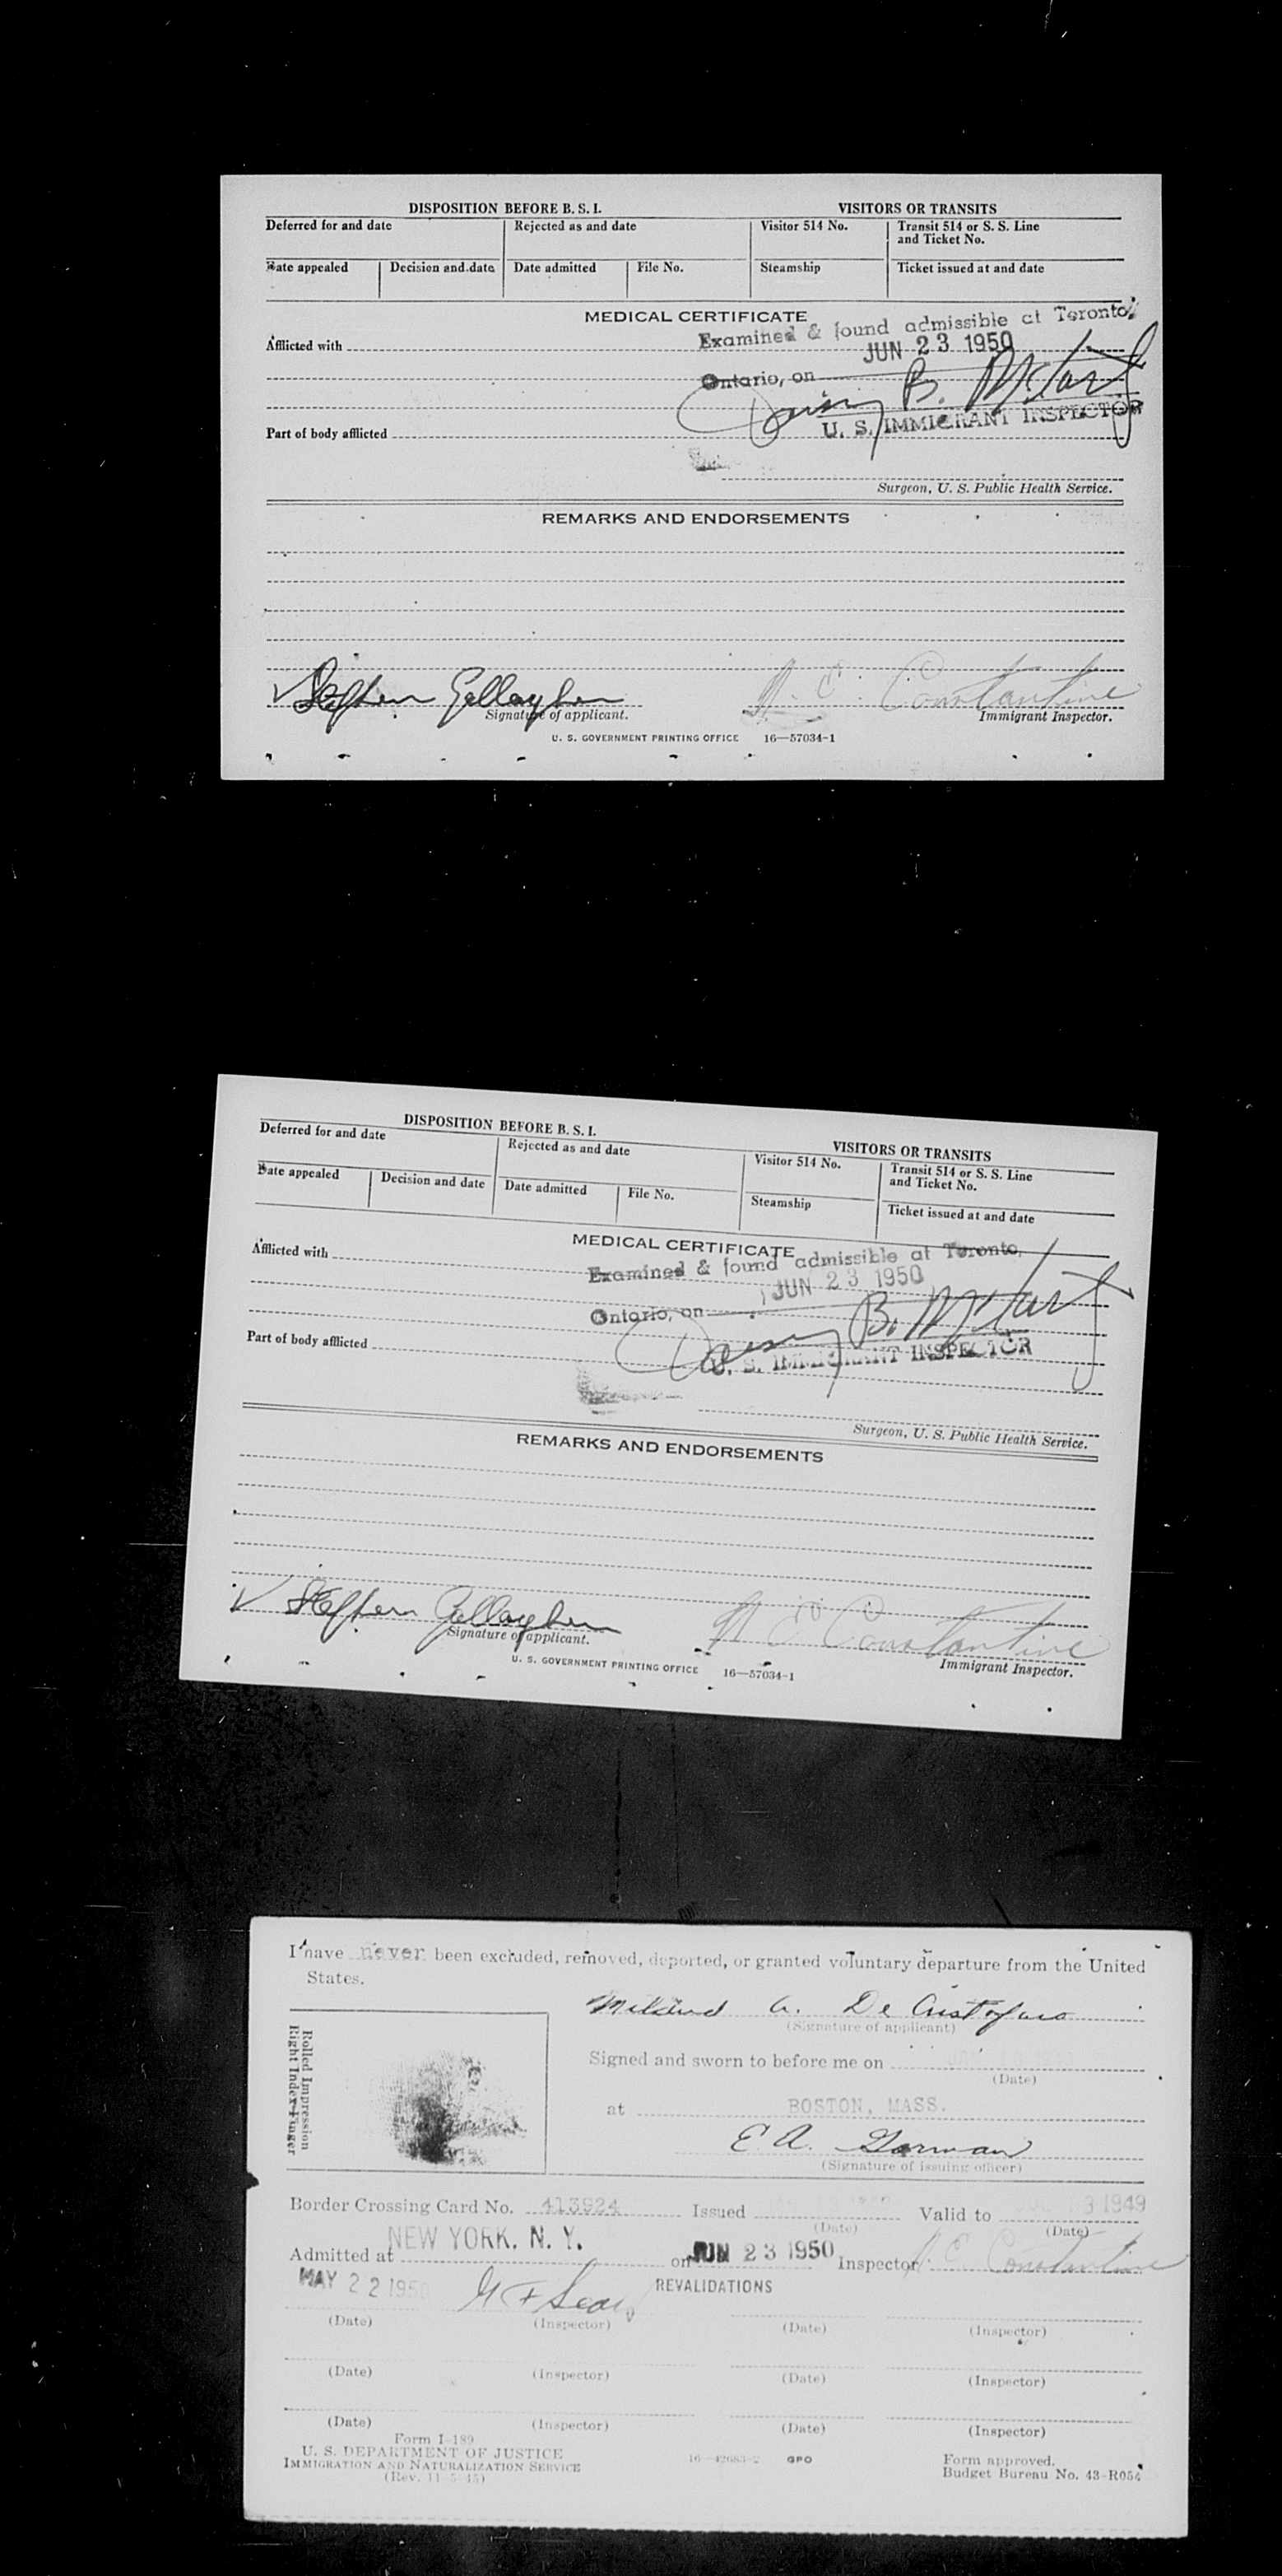 DISPOSITION BEFORE B. S. I. VISITORS OR TRANSITS
Deferred for and date Rejected as and date Visitor 514 No. Transit 514 or S. S. Line and Ticket No.
Date appealed Decision and date Date admitted File No. Steamship Ticket issued at and date
MEDICAL CERTIFICATE
Examined & found admissible at Toronto,
Afflicted with
JUN 23 1950
Ontario, on
B.
U. S. IMMIGRANT INSPECTOR
Part of body afflicted
Surgeon, U. S. Public Health Service.
REMARKS AND ENDORSEMENTS
Stephen Gallagher Constantine
Signature of applicant. Immigrant Inspector.
U. S. GOVERNMENT PRINTING OFFICE 16—57034-1
DISPOSITION BEFORE B. S. I. VISITORS OR TRANSITS
Deferred for and date Rejected as and date Visitor 514 No. Transit 514 or S. S. Line and Ticket No.
Date appealed Decision and date Date admitted File No. Steamship Ticket issued at and date
MEDICAL CERTIFICATE
Afflicted with
Examined & found admissible at Toronto,
JUN 23 1950
Ontario, on
B.
U. S. IMMIGRANT INSPECTOR
Part of body afflicted
Surgeon, U. S. Public Health Service.
REMARKS AND ENDORSEMENTS
Stephen Gallagher Constantine
Signature of applicant. Immigrant Inspector.
U. S. GOVERNMENT PRINTING OFFICE 16—57034-1
I have never been excluded, removed, deported, or granted voluntary departure from the United
States.
Mildred A. De Cristofaro
(Signature of applicant)
Rolled Impression
Right Index Finger
Signed and sworn to before me on
(Date)
at BOSTON, MASS.
E. A. Gorman
(Signature of issuing officer)
Border Crossing Card No. 413924 Issued Valid to 3 1949
(Date) (Date)
NEW YORK, N. Y.
Admitted at on JUN 23 1950 Inspector Constantine
MAY 22 195
REVALIDATIONS
(Date) (Inspector) (Date) (Inspector)
(Date) (Inspector) (Date) (Inspector)
(Date) (Inspector) (Date) (Inspector)
Form I-189
U. S. DEPARTMENT OF JUSTICE
IMMIGRATION AND NATURALIZATION SERVICE
(Rev. 11-5-45)
16—42083-2 GPO
Form approved.
Budget Bureau No. 43-R054